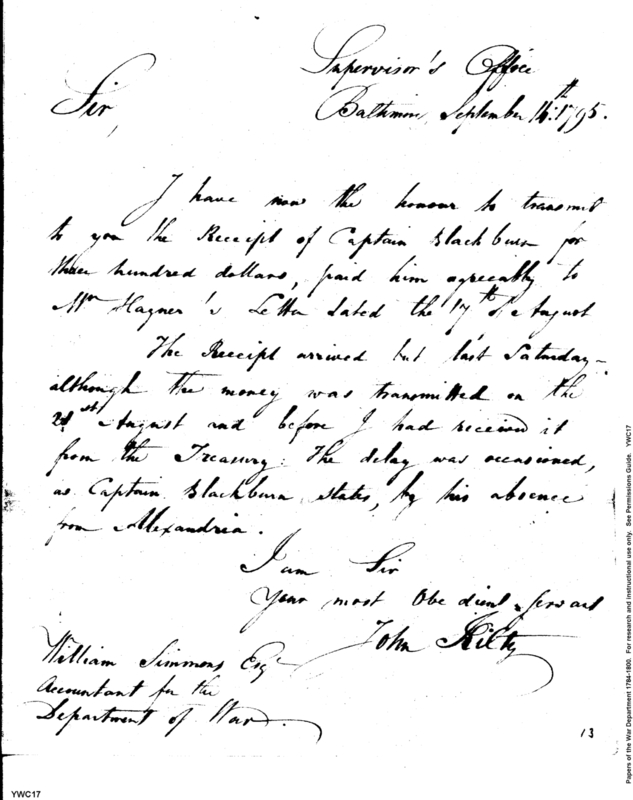 Supervisor's Office
Baltimore, September 14th. 1795.
Sir,
I have now the honour to transmit
to you the Receipt of Captain Blackburn for
three hundred dollars, paid him agreeably to
Mr Hagner's Letter dated the 17th of August
The Receipt arrived but last Saturday
although the money was transmitted on the
21st August and before I had received it
from the Treasury. The delay was occasioned,
as Captain Blackburn states, by his absence
from Alexandria.
I am Sir
Your most Obedient Servant
John Kilty
William Simmons Esqr
Accountant for the
Department of War.
13
YWC17
Papers of the War Department 1784-1800. For research and instructional use only. See Permissions Guide. YWC17